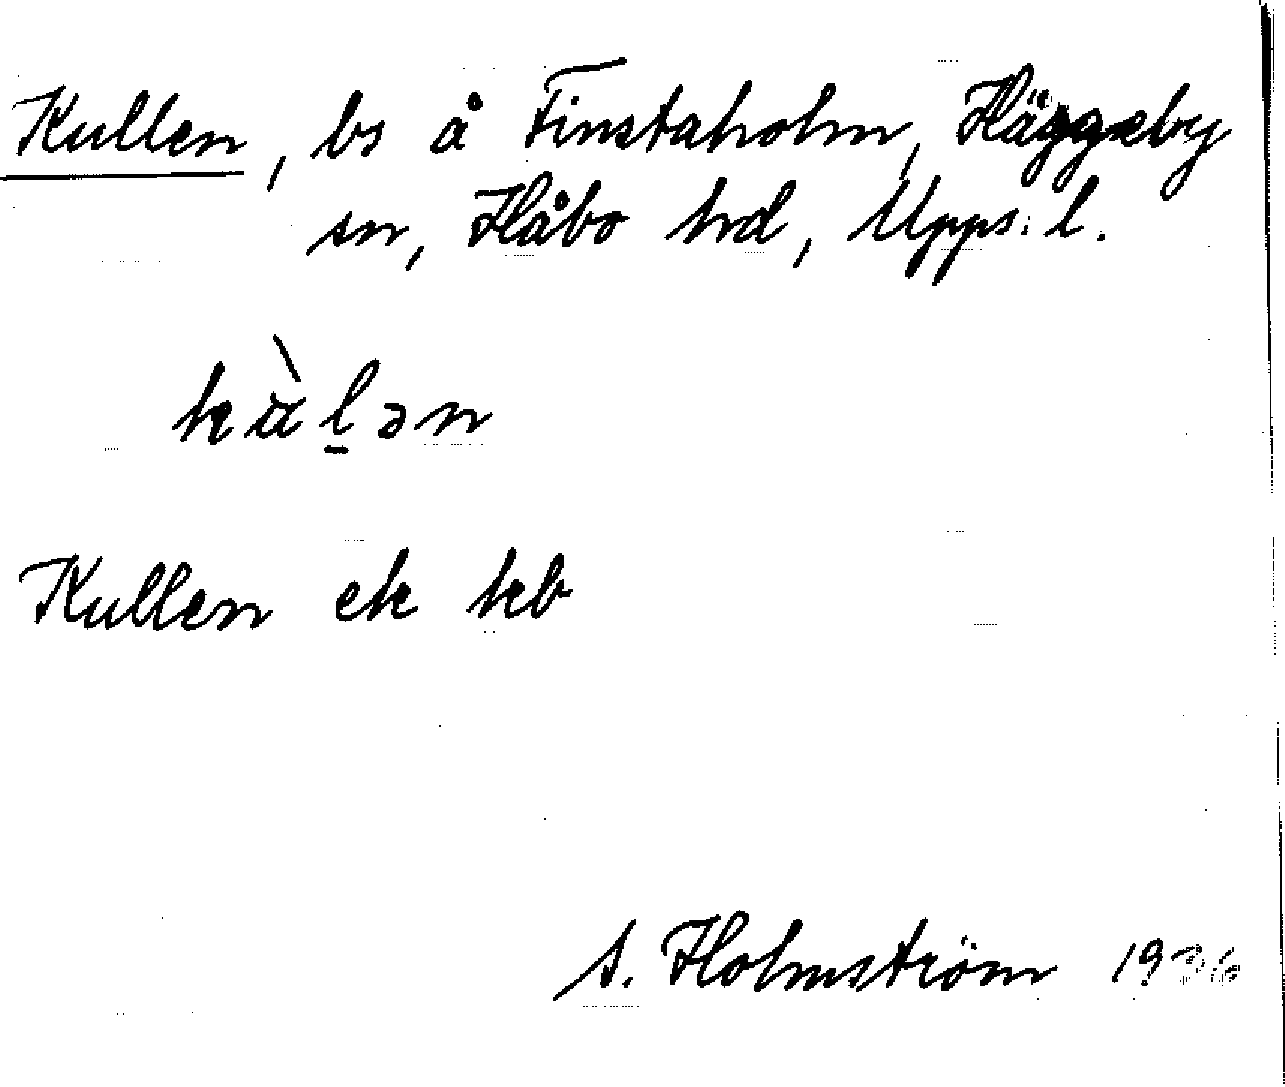 Kullen, bs å Finstaholm, Häggeby
sn, Håbo hd, Upps. l.
kùl̠ən
Kullen ek kb
S. Holmström 1936